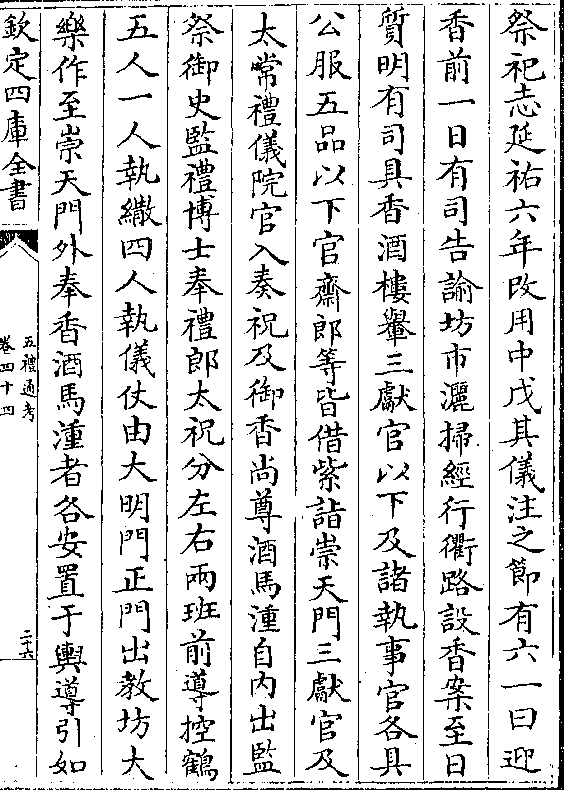 祭祀志延祐六年改用中戊其儀注之節有六一曰迎
香前一日有司告諭坊市灑掃經行衢路設香案至日
質明有司具香酒樓轝三獻官以下及諸執事官各具
公服五品以下官齋郎等皆借紫詣崇天門三獻官及
太常禮儀院官入奏祝及御香尚尊酒馬湩自内出監
祭御史監禮博士奉禮郎太祝分左右兩班前導控鶴
五人一人執繖四人執儀仗由大明門正門出教坊大
樂作至崇天門外奉香酒馬湩者各安置于輿導引如
欽定四庫全書
五禮通考
卷四十四
二十六